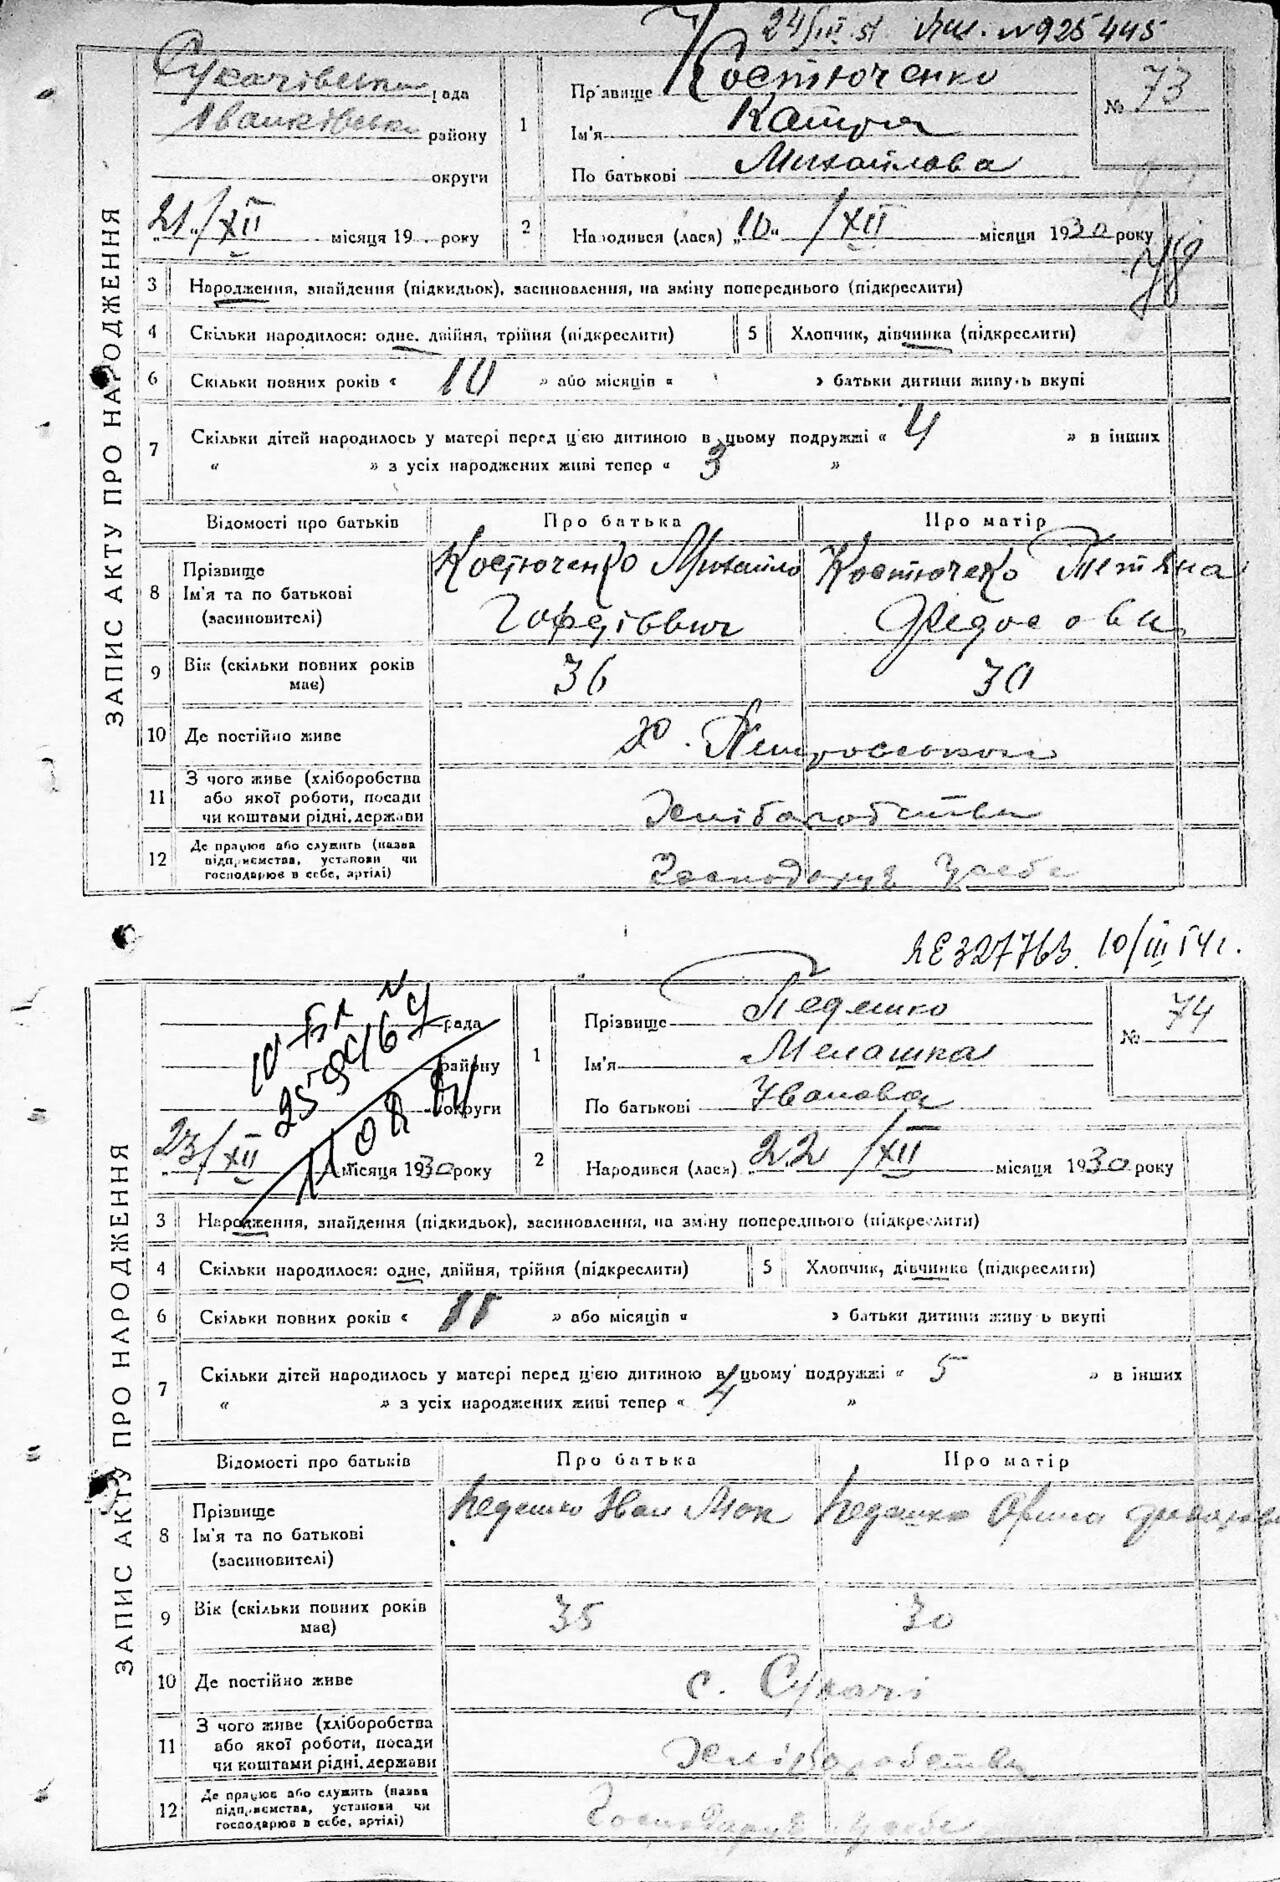 24/III 51 № 925445
Сукачівська рада
Іванківськ району
округи
21/XII місяця 19 року
ЗАПИС АКТУ ПРО НАРОДЖЕННЯ
1 Прізвище Костюченко
Ім'я Катря
По батькові Михайлова
№ 73
2 Народився (лася) „10“ /XII місяця 1930 року
3 Народження, знайдення (підкидьок), засиновлення, на зміну попереднього (підкреслити)
4 Скільки народилося: одне, двійня, трійня (підкреслити) 5 Хлопчик, дівчинка (підкреслити)
6 Скільки повних років « 10 » або місяців « » батьки дитини живуть вкупі
7 Скільки дітей народилось у матері перед ц'єю дитиною в цьому подружжі « 4 » в інших
« » з усіх народжених живі тепер « 3 »
Відомості про батьків Про батька Про матір
8 Прізвище Ім'я та по батькові (засиновителі)
Костюченко Михайло Костюченко Тетяна
Гордієвич Федосова
9 Вік (скільки повних років має) 36 30
10 Де постійно живе х. Петровському
11 З чого живе (хліборобства або якої роботи, посади чи коштами рідні, держави Хліборобства
12 Де працює або служить (назва підприємства, установи чи господарює в себе, артілі) Господарює у себе
ЯЕ 327763 10/III 54 г.
рада
району
округи
23/XII місяця 1930 року
ЗАПИС АКТУ ПРО НАРОДЖЕННЯ
1 Прізвище Педешко
Ім'я Мелашка
По батькові Іванова
№ 74
2 Народився (лася) „22 /XII місяця 1930 року
3 Народження, знайдення (підкидьок), засиновлення, на зміну попереднього (підкреслити)
4 Скільки народилося: одне, двійня, трійня (підкреслити) 5 Хлопчик, дівчинка (підкреслити)
6 Скільки повних років « 11 » або місяців « » батьки дитини живуть вкупі
7 Скільки дітей народилось у матері перед ц'єю дитиною в цьому подружжі « 5 » в інших
« » з усіх народжених живі тепер « 4 »
Відомості про батьків Про батька Про матір
8 Прізвище Ім'я та по батькові (засиновителі)
Педешко Іван Педешко Орина
9 Вік (скільки повних років має) 35 30
10 Де постійно живе с. Сукачі
11 З чого живе (хліборобства або якої роботи, посади чи коштами рідні, держави Хліборобства
12 Де працює або служить (назва підприємства, установи чи господарює в себе, артілі) Господарює у себе